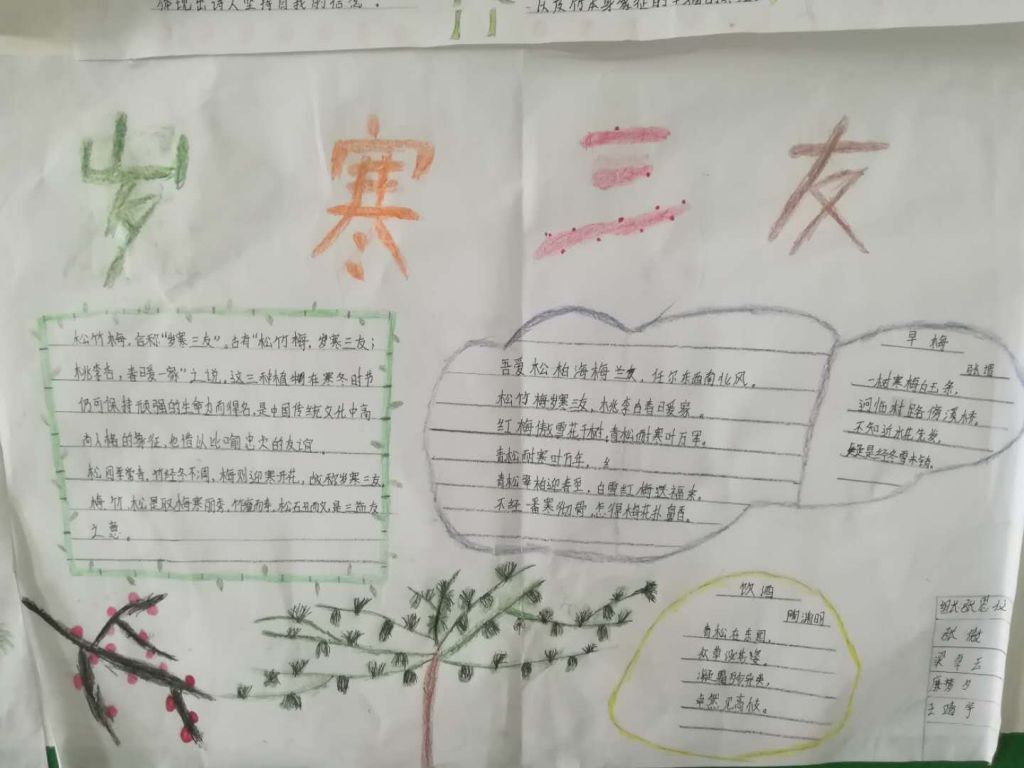 岁寒三友
松竹梅,合称"岁寒三友"。古有"松竹梅,岁寒三友;
桃李杏,春暖一家"之说,这三种植物在寒冬时节
仍可保持顽强的生命力而得名,是中国传统文化中高
尚人格的象征,也借以比喻忠贞的友谊。
松四季常青,竹经冬不凋,梅则迎寒开花,故称岁寒三友
梅竹,松是取梅寒丽秀,竹瘦而寿,松石丑而文,是三益友
之意。
吾爱松柏海梅兰,任尔东西南北风。
松竹梅岁寒三友,桃李杏春暖家。
红梅傲雪花千树,青松耐寒叶万年。
青松耐寒叶万年,
青松翠柏迎春至,白雪红梅送福来。
不经一番寒彻骨,怎得梅花扑鼻香。
早梅
张谓
一树寒梅白玉条,
迥临村路傍溪桥。
不知近水花先发,
疑是经冬雪未销。
饮酒
陶渊明
青松在东园,
众草没其姿。
凝霜殄异类,
卓然见高枝。
组长